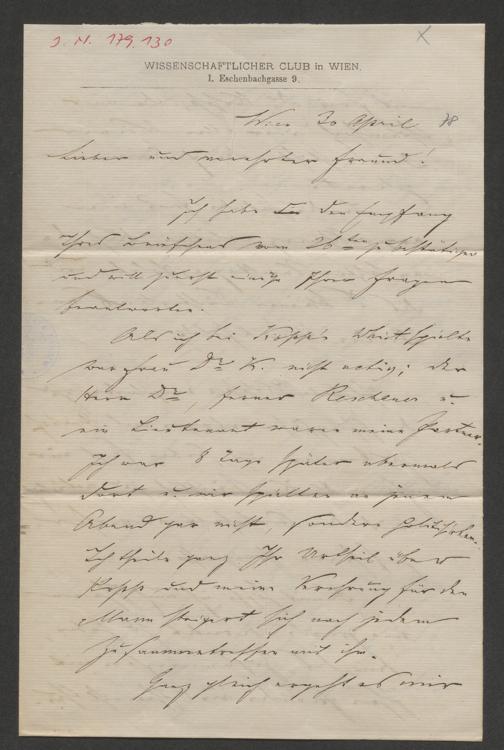 J. N. 179.130
WISSENSCHAFTLICHER CLUB in WIEN.
I. Eschenbachgasse 9.
Wien 30 April 78
Lieber und verehrter Freund!
Ich habe den Empfang
Ihres Briefchens vom 26ten zu bestätigen
und will zuerst einige Ihrer Fragen
beantworten.
Als ich bei Kopp's Whist spielte
war Frau Dr K. nicht nötig; der
Herr Dr, ferner Reschauer u.
ein Lieutenant waren meine Partner.
Ich war 8 Tage später abermals
dort u. wir spielten an jenem
Abend gar nicht, sondern politisirten.
Ich theile ganz Ihr Urtheil über
Kopp und meine Verehrung für den
Mann steigert sich nach jedem
Zusammentreffen mit ihm.
Ganz gleich ergeht es mir